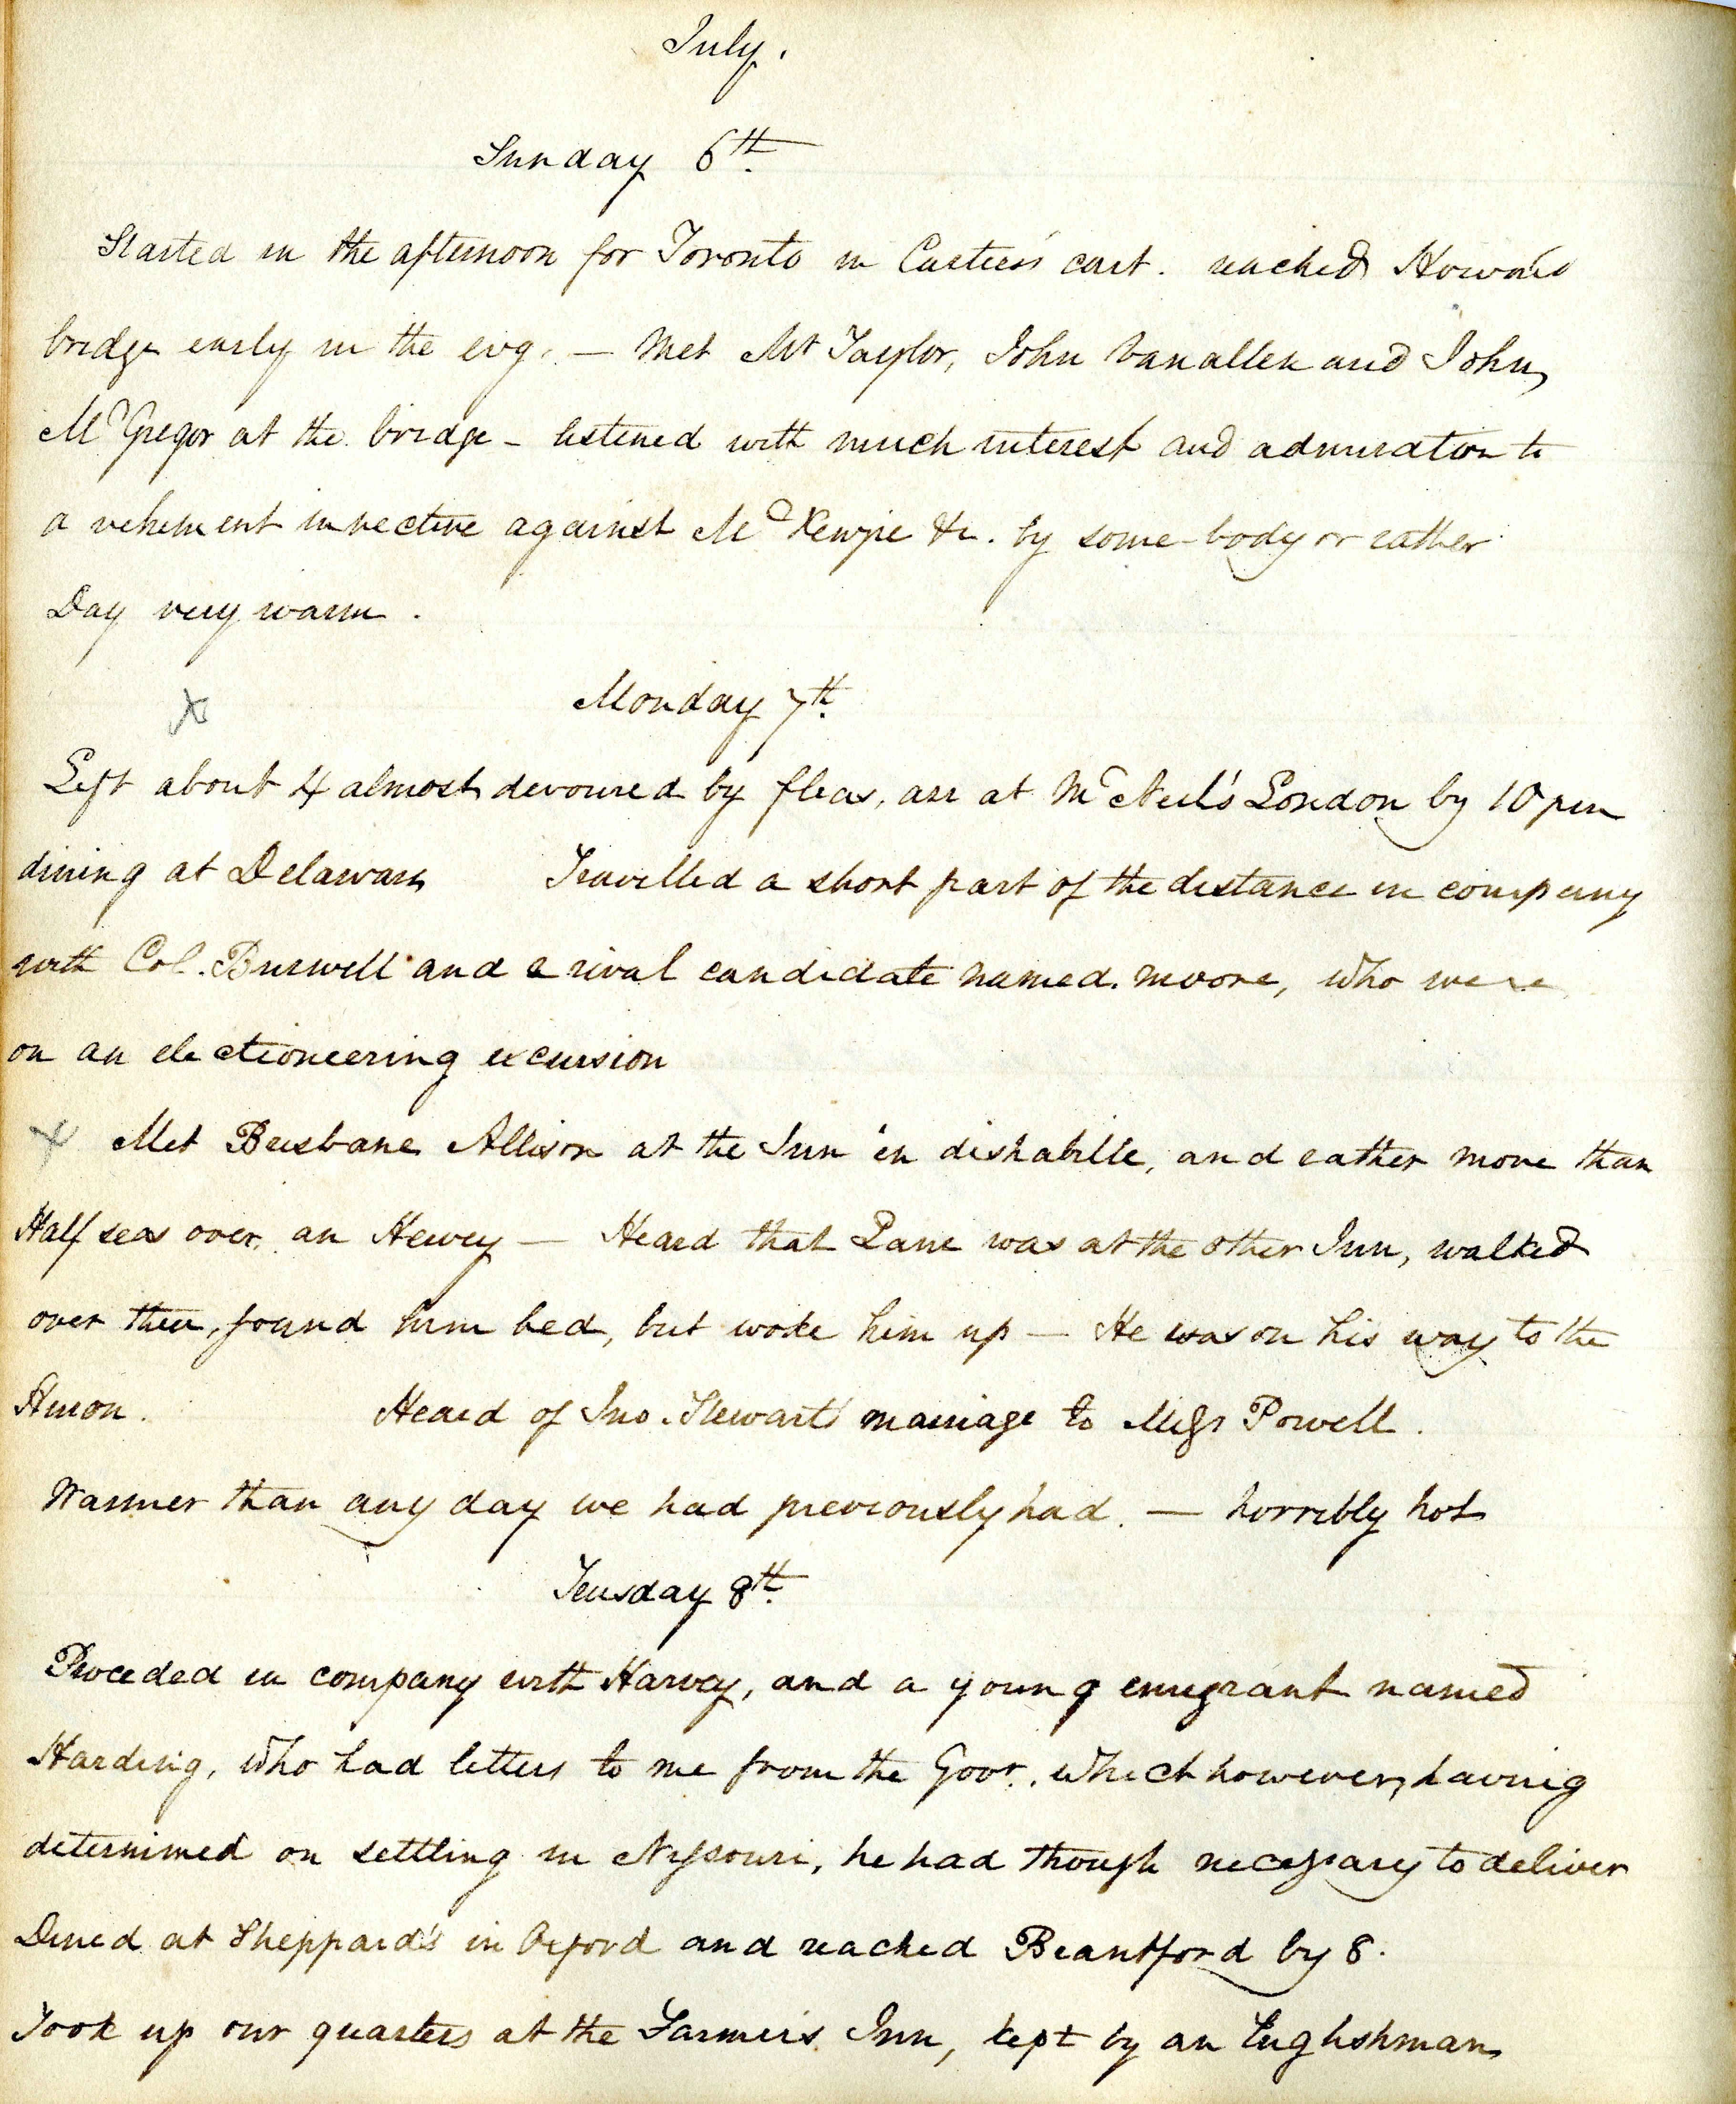 July.
Sunday 6th.
Started in the afternoon for Toronto in Carters cart. reached Howard
bridge early in the evg. — Met Mr Taylor, John Vanallen and John
McGregor at the bridge – listened with much interest and admiration to
a vehement invective against McKenzie &c. by some-body or rather
Day very warm.
Monday 7th.
Left about 4 almost devoured by fleas, arr at McNeil's London by 10 pm
dining at Delaware Travelled a short part of the distance in company
with Col. Burwell and a rival candidate named. Moore, who were
on an electioneering excursion
x Met Brisbane Allison at the Inn en dishabille, and rather more than
Half seas over. an Hewey — Heard that Lane was at the other Inn, walked
over there, found him bed, but woke him up — He was on his way to the
Huron. Heard of Jno. Stewart's marriage to Miss Powell.
Warmer than any day we had previously had. — horribly hot
Teusday 8th.
Proceded in company with Harvey, and a young emigrant named
Harding, who had letters to me from the Govr., which however, having
determined on settling in Nissouri, he had though necessary to deliver
Dined at Sheppard's in Oxford and reached Brantford by 8.
Took up our quarters at the Farmers Inn, kept by an Englishman